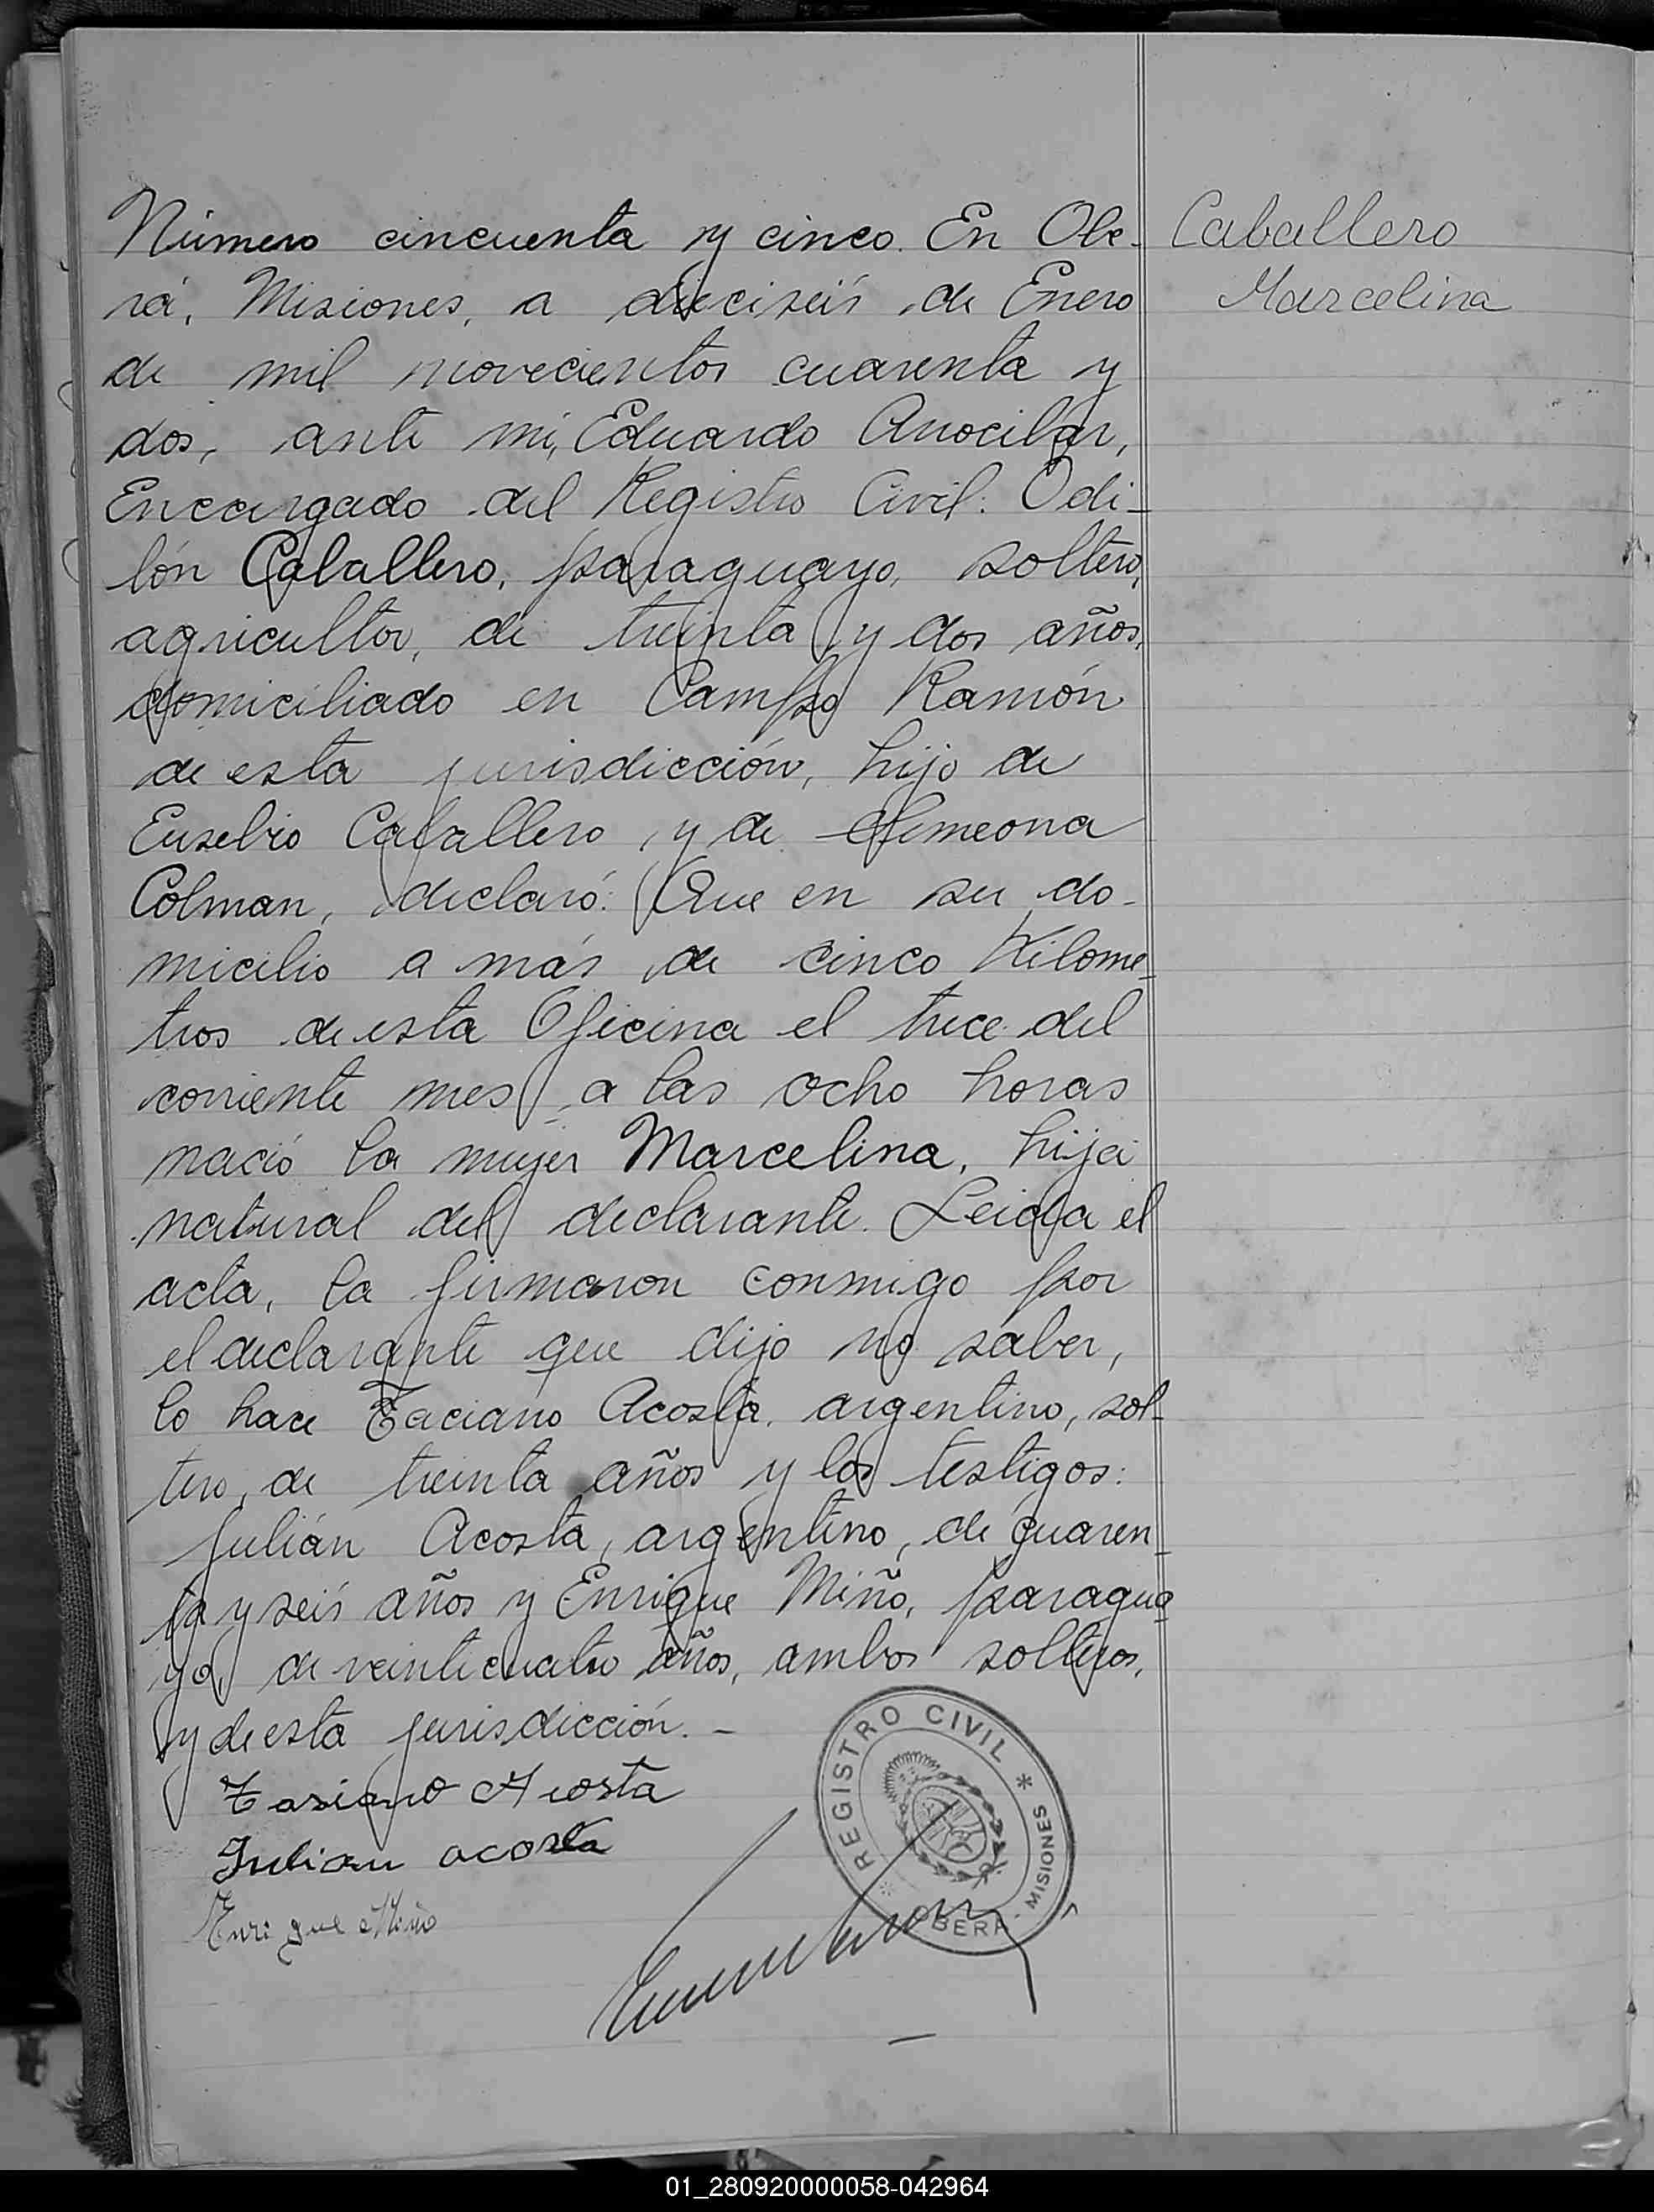 Número cincuenta y cinco. En Obe-
rá, Misiones, a dieciseis de Enero
de mil novecientos cuarenta y
dos, ante mi, Eduardo
Encargado del Registro Civil: Odi-
lón Caballero, paraguayo, soltero,
agricultor, de treinta y dos años,
domiciliado en Campo Ramón
de esta jurisdicción, hijo de
Eusebio Caballero y de Simeona
Colman, declaró: Que en su do-
micilio a más de cinco Kilome-
tros de esta Oficina el trece del
corriente mes a las ocho horas
nació la mujer Marcelina, hija
natural del declarante. Leida el
acta, la firmaron conmigo por
el declarante que dijo no saber,
lo hace Taciano Acosta, argentino, sol-
tero, de treinta años y los testigos:
Julián Acosta, argentino, de cuaren-
ta y seis años y Enrique Miño, paragua-
yo, de veinticuatro años, ambos solteros,
y de esta jurisdicción. -
Tasiano Acosta
Julian acosta
Enrique Miño
Caballero
Marcelina
REGISTRO CIVIL * OBERA - MISIONES *
01_280920000058-042964